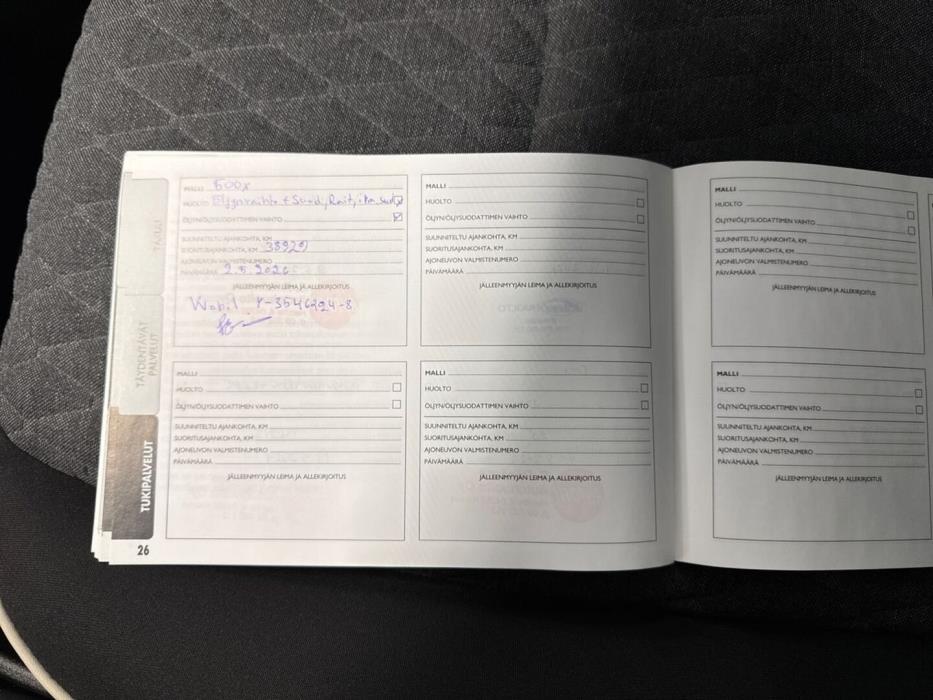 MALLI 500x
HUOLTO + Suod, Rait, ilm.
ÖLJYN/ÖLJYSUODATTIMEN VAIHTO
SUUNNITELTU AJANKOHTA, KM
SUORITUSAJANKOHTA, KM
AJONEUVON VALMISTENUMERO
PÄIVÄMÄÄRÄ
JÄLLEENMYYJÄN LEIMA JA ALLEKIRJOITUS
MALLI
HUOLTO
ÖLJYN/ÖLJYSUODATTIMEN VAIHTO
SUUNNITELTU AJANKOHTA, KM
SUORITUSAJANKOHTA, KM
AJONEUVON VALMISTENUMERO
PÄIVÄMÄÄRÄ
JÄLLEENMYYJÄN LEIMA JA ALLEKIRJOITUS
MALLI
HUOLTO
ÖLJYN/ÖLJYSUODATTIMEN VAIHTO
SUUNNITELTU AJANKOHTA, KM
SUORITUSAJANKOHTA, KM
AJONEUVON VALMISTENUMERO
PÄIVÄMÄÄRÄ
JÄLLEENMYYJÄN LEIMA JA ALLEKIRJOITUS
MALLI
HUOLTO
ÖLJYN/ÖLJYSUODATTIMEN VAIHTO
SUUNNITELTU AJANKOHTA, KM
SUORITUSAJANKOHTA, KM
AJONEUVON VALMISTENUMERO
PÄIVÄMÄÄRÄ
JÄLLEENMYYJÄN LEIMA JA ALLEKIRJOITUS
MALLI
HUOLTO
ÖLJYN/ÖLJYSUODATTIMEN VAIHTO
SUUNNITELTU AJANKOHTA, KM
SUORITUSAJANKOHTA, KM
AJONEUVON VALMISTENUMERO
PÄIVÄMÄÄRÄ
JÄLLEENMYYJÄN LEIMA JA ALLEKIRJOITUS
MALLI
HUOLTO
ÖLJYN/ÖLJYSUODATTIMEN VAIHTO
SUUNNITELTU AJANKOHTA, KM
SUORITUSAJANKOHTA, KM
AJONEUVON VALMISTENUMERO
PÄIVÄMÄÄRÄ
JÄLLEENMYYJÄN LEIMA JA ALLEKIRJOITUS
TÄYDENTÄVÄT
PALVELUT
TUKIPALVELUT
26